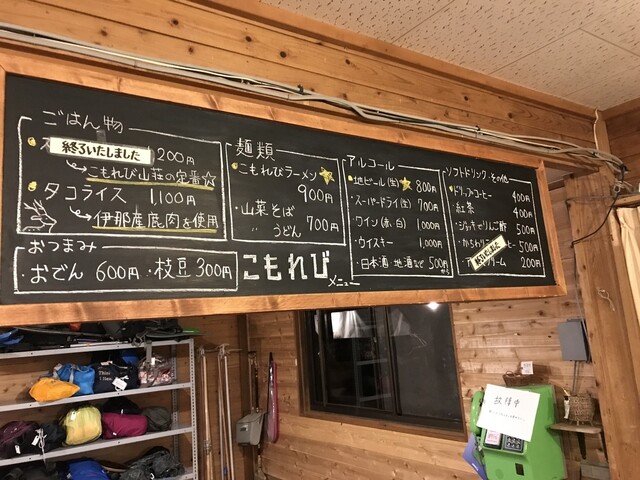 ごはん物
終了いたしました 200円
こもれび山荘の定番☆
・タコライス 1,100円
伊那産鹿肉を使用
おつまみ
・おでん 600円 ・枝豆 300円
麺類
・こもれびラーメン
900円
・山菜そば
〃 うどん 700円
こもれび
メニュー
アルコール
・地ビール(生) 800円
・スーパードライ(生) 700円
・ワイン(赤、白) 1,000円
・ウイスキー 1,000円
・日本酒・地酒など 500円から
ソフトドリンク・その他
・ドリップコーヒー 400円
・紅茶 400円
・ジョッキでりんご酢 500円
500円
200円
故障中